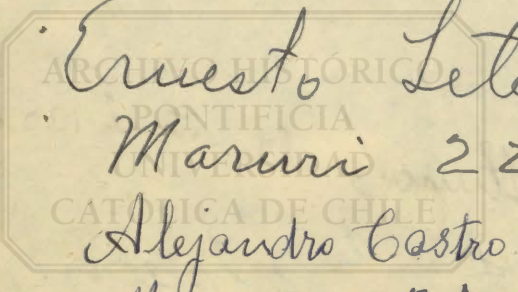 Ernesto
Maruri 22
Alejandro Castro
ARCHIVO HISTÓRICO
PONTIFICIA
UNIVERSIDAD
CATÓLICA DE CHILE